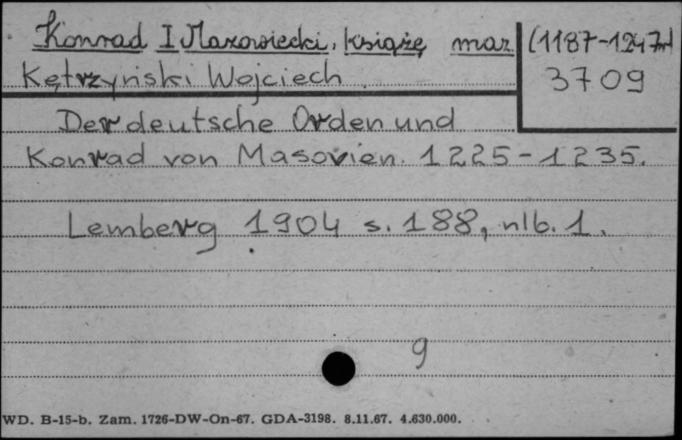 Konrad I Mazowiecki, książę maz (1187-1247r)
Kętrzyński Wojciech 3709
Der deutsche Orden und
Konrad von Masovien. 1225-1235.
Lemberg 1904 s. 188, nlb. 1.
9
WD. B-15-b. Zam. 1726-DW-On-67. GDA-3198. 8.11.67. 4.630.000.